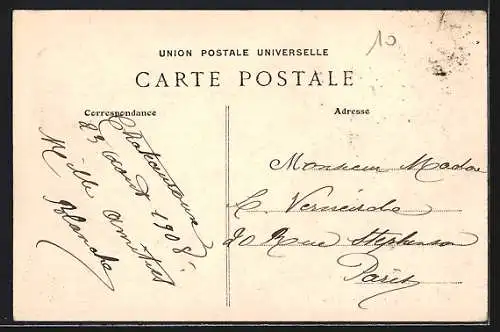 10
UNION POSTALE UNIVERSELLE
CARTE POSTALE
Correspondance
Adresse
Chateauroux
23 Aout 1908
Mille amitiés
Blanche
Monsieur Madame
20 Rue Stephenson
Paris